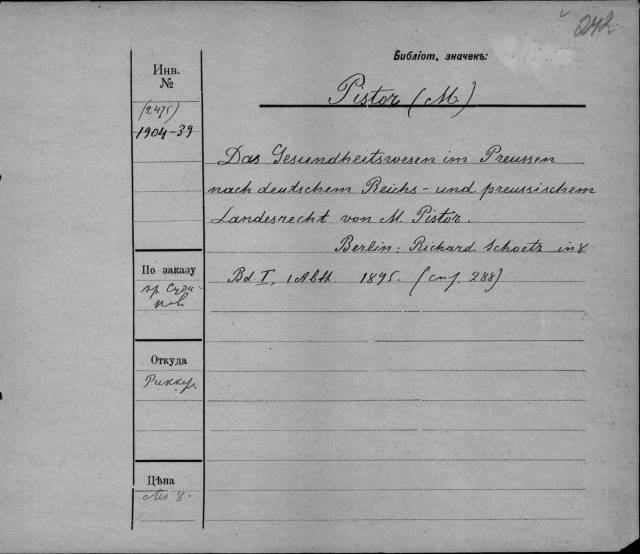 242
Библіот. значекъ:
Инв.
№
Pistor (M)
(2475)
1904-39
Das Gesundheitswesen im Preussen
nach deutschem Reichs- und preussischem
Landesrecht von M. Pistor.
Berlin: Richard Schoetz in 8
По заказу
Bd. I, 1 Abth 1895. (стр. 288)
Откуда
Риккер.
Цѣна
8.